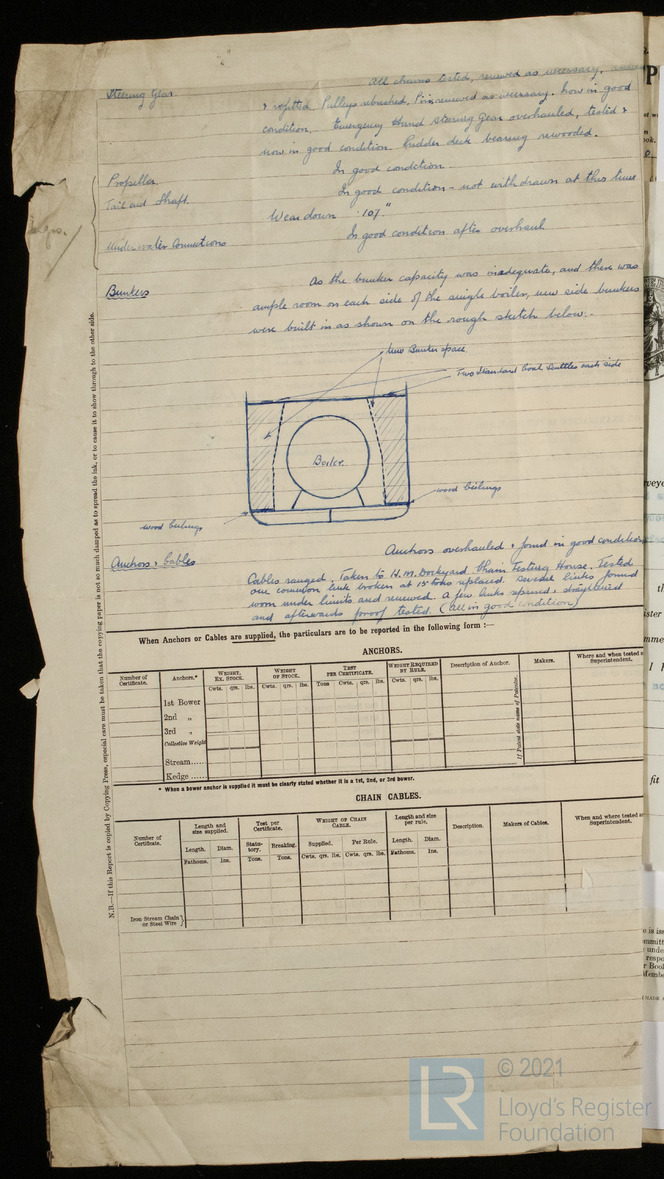 Steering Gear.
All chains tested, renewed as necessary,
& refitted. Pulleys rebushed, Pins renewed as necessary. Now in good
condition. Emergency Hand Steering Gear overhauled, tested &
now in good condition. Rudder deck bearing rewooded.
Propeller. In good condition
Tail end Shaft. In good condition - not withdrawn at this time
Wear down .107"
Underwater Connections In good condition after overhaul
Bunkers
As the bunker capacity was inadequate, and there was
ample room on each side of the single boiler, new side bunkers
were built in as shown on the rough sketch below:-
New Bunker space.
Two Standard Coal Scuttles each side
Boiler.
wood ceilings
wood ceilings
Anchors & Cables
Anchors overhauled & found in good condition
Cables ranged. Taken to H.M. Dockyard Chain Testing House. Tested
one common link broken at 15 tons replaced. Several links found
worn under limits and renewed. A few links opened, straightened
and afterwards proof tested. (All in good condition)
When Anchors or Cables are supplied, the particulars are to be reported in the following form :—
ANCHORS.
Number of Certificate.
Anchors.*
WEIGHT, EX. STOCK.
WEIGHT OF STOCK.
TEST PER CERTIFICATE.
WEIGHT REQUIRED BY RULE.
Description of Anchor.
Makers.
Where and when tested
Superintendent.
Cwts. qrs. lbs. Cwts. qrs. lbs. Tons Cwts. qrs. lbs. Cwts. qrs. lbs.
1st Bower
2nd „
3rd „
Collective Weight
Stream......
Kedge ......
If Patent state name of Patentee.
* When a bower anchor is supplied it must be clearly stated whether it is a 1st, 2nd, or 3rd bower.
CHAIN CABLES.
Number of Certificate.
Length and size supplied.
Test per Certificate.
WEIGHT OF CHAIN CABLE.
Length and size per rule.
Description.
Makers of Cables.
When and where tested
Superintendent.
Length. Diam. Statutory. Breaking. Supplied. Per Rule. Length. Diam.
Fathoms. Ins. Tons. Tons. Cwts. qrs. lbs. Cwts. qrs. lbs. Fathoms. Ins.
Iron Stream Chain
or Steel Wire
N.B.—If this Report is copied by Copying Press, especial care must be taken that the copying paper is not so much damped as to spread the ink, or to cause it to show through to the other side.
LR
© 2021
Lloyd's Register
Foundation